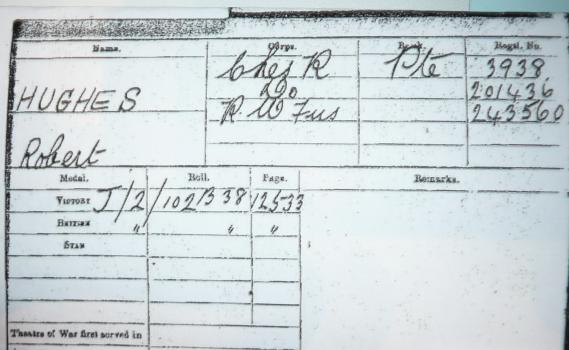 Name. Corps. Rank. Regtl. No.
Ches R Pte 3938
HUGHES Do 201436
R. W Fus 243560
Robert
Medal. Roll. Page. Remarks.
VICTORY J/2/102B38 12533
BRITISH " " "
STAR
Theatre of War first served in